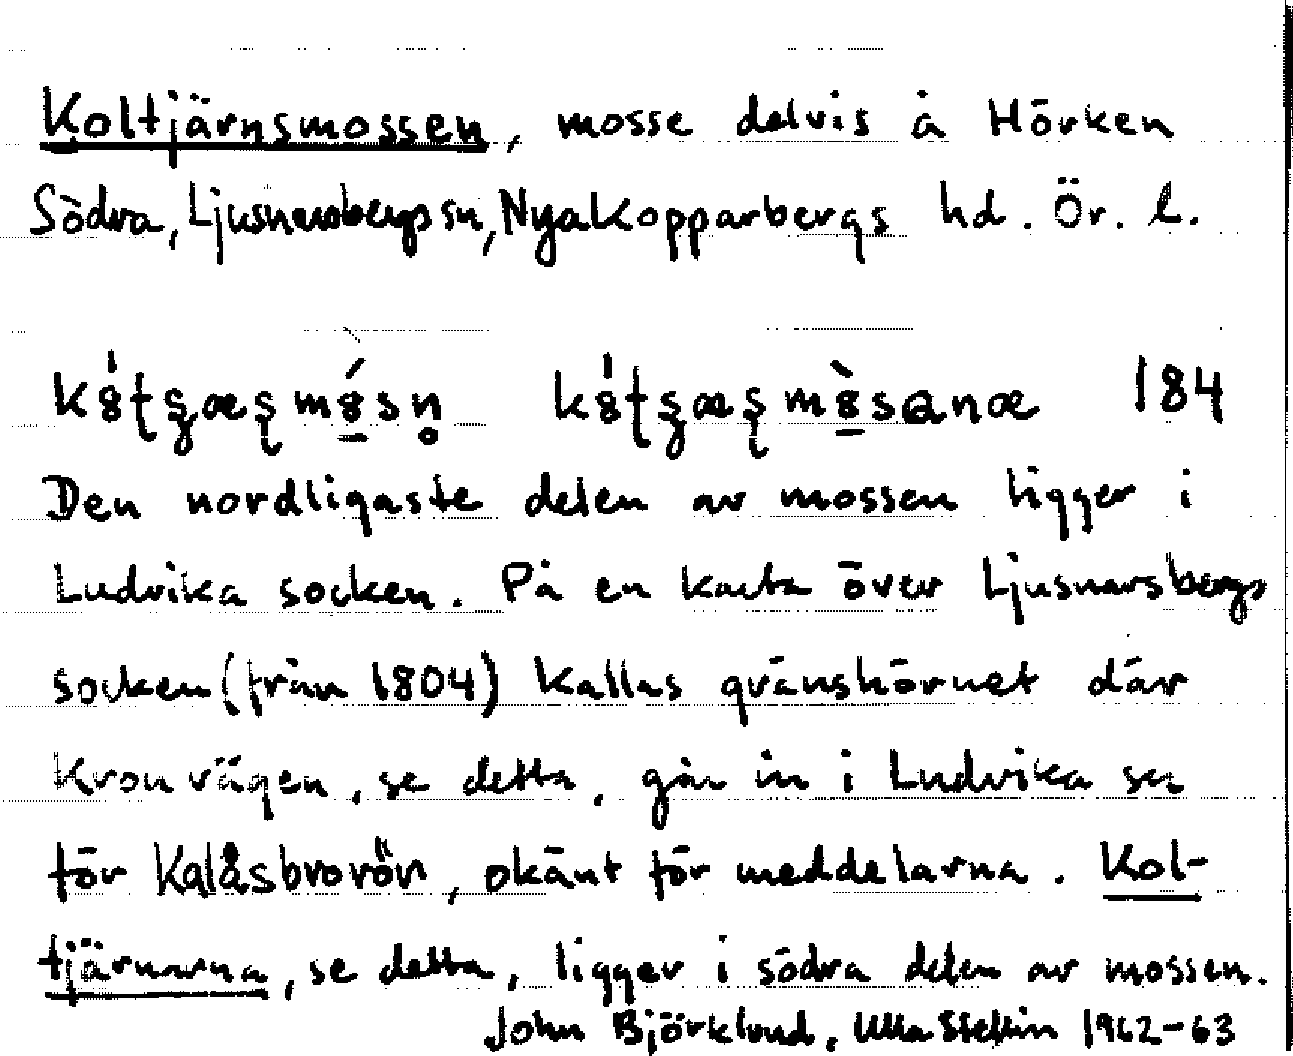 Koltjärnsmossen, mosse delvis å Hörken
Södra, Ljusnarsbergs sn, Nya Kopparbergs hd. Ör. l.
184
Den nordligaste delen av mossen ligger i
Ludvika socken. På en karta över Ljusnarsbergs
socken (från 1804) kallas gränshörnet där
Kronvägen, se detta, går in i Ludvika sn
för Kalåsbrorör, okänt för meddelarna. Kol-
tjärnarna, se detta, ligger i södra delen av mossen.
John Björklund, Ulla Stellin 1962-63